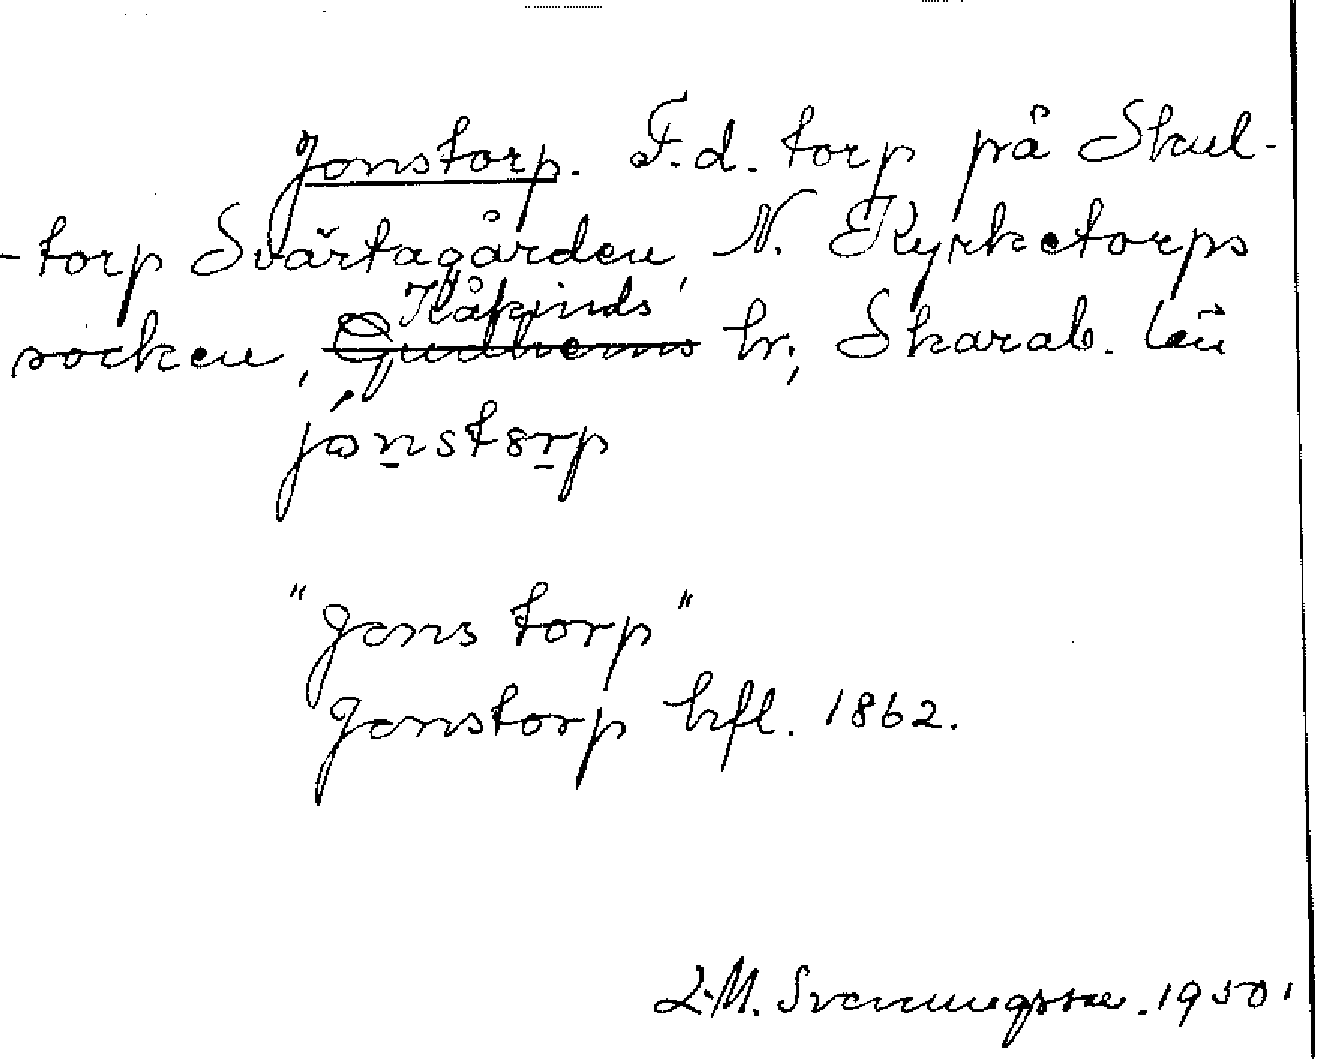 Jonstorp. F.d. torp på Skul-
-torp Svärtagården, N. Kyrketorps
Kåkinds
socken, Gudhems hr, Skarab. län
jónstorp
"Jons torp"
Jonstorp hfl. 1862.
L.M. Svenungsson. 1950.